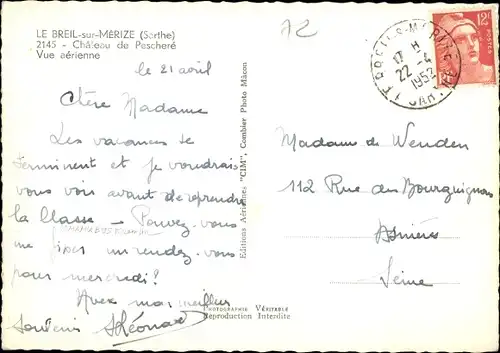 LE BREIL-sur-MÉRIZE (Sarthe)
2145 - Château de Pescheré
Vue aérienne
72
le 21 avril
Chère Madame
Les vacances se
terminent et je voudrais
vous voir avant de reprendre
la classe - Pouvez-vous
me fixer un rendez-vous
pour mercredi?
Avec mon meilleur
souvenir
Editions Aériennes "CIM", Combier Photo Mâcon
PHOTOGRAPHIE VÉRITABLE
Reproduction Interdite
12F
POSTES
17 H
22-4
1952
SARTHE
Madame de Wenden
112 Rue des Bourguignons
Asnières
Seine